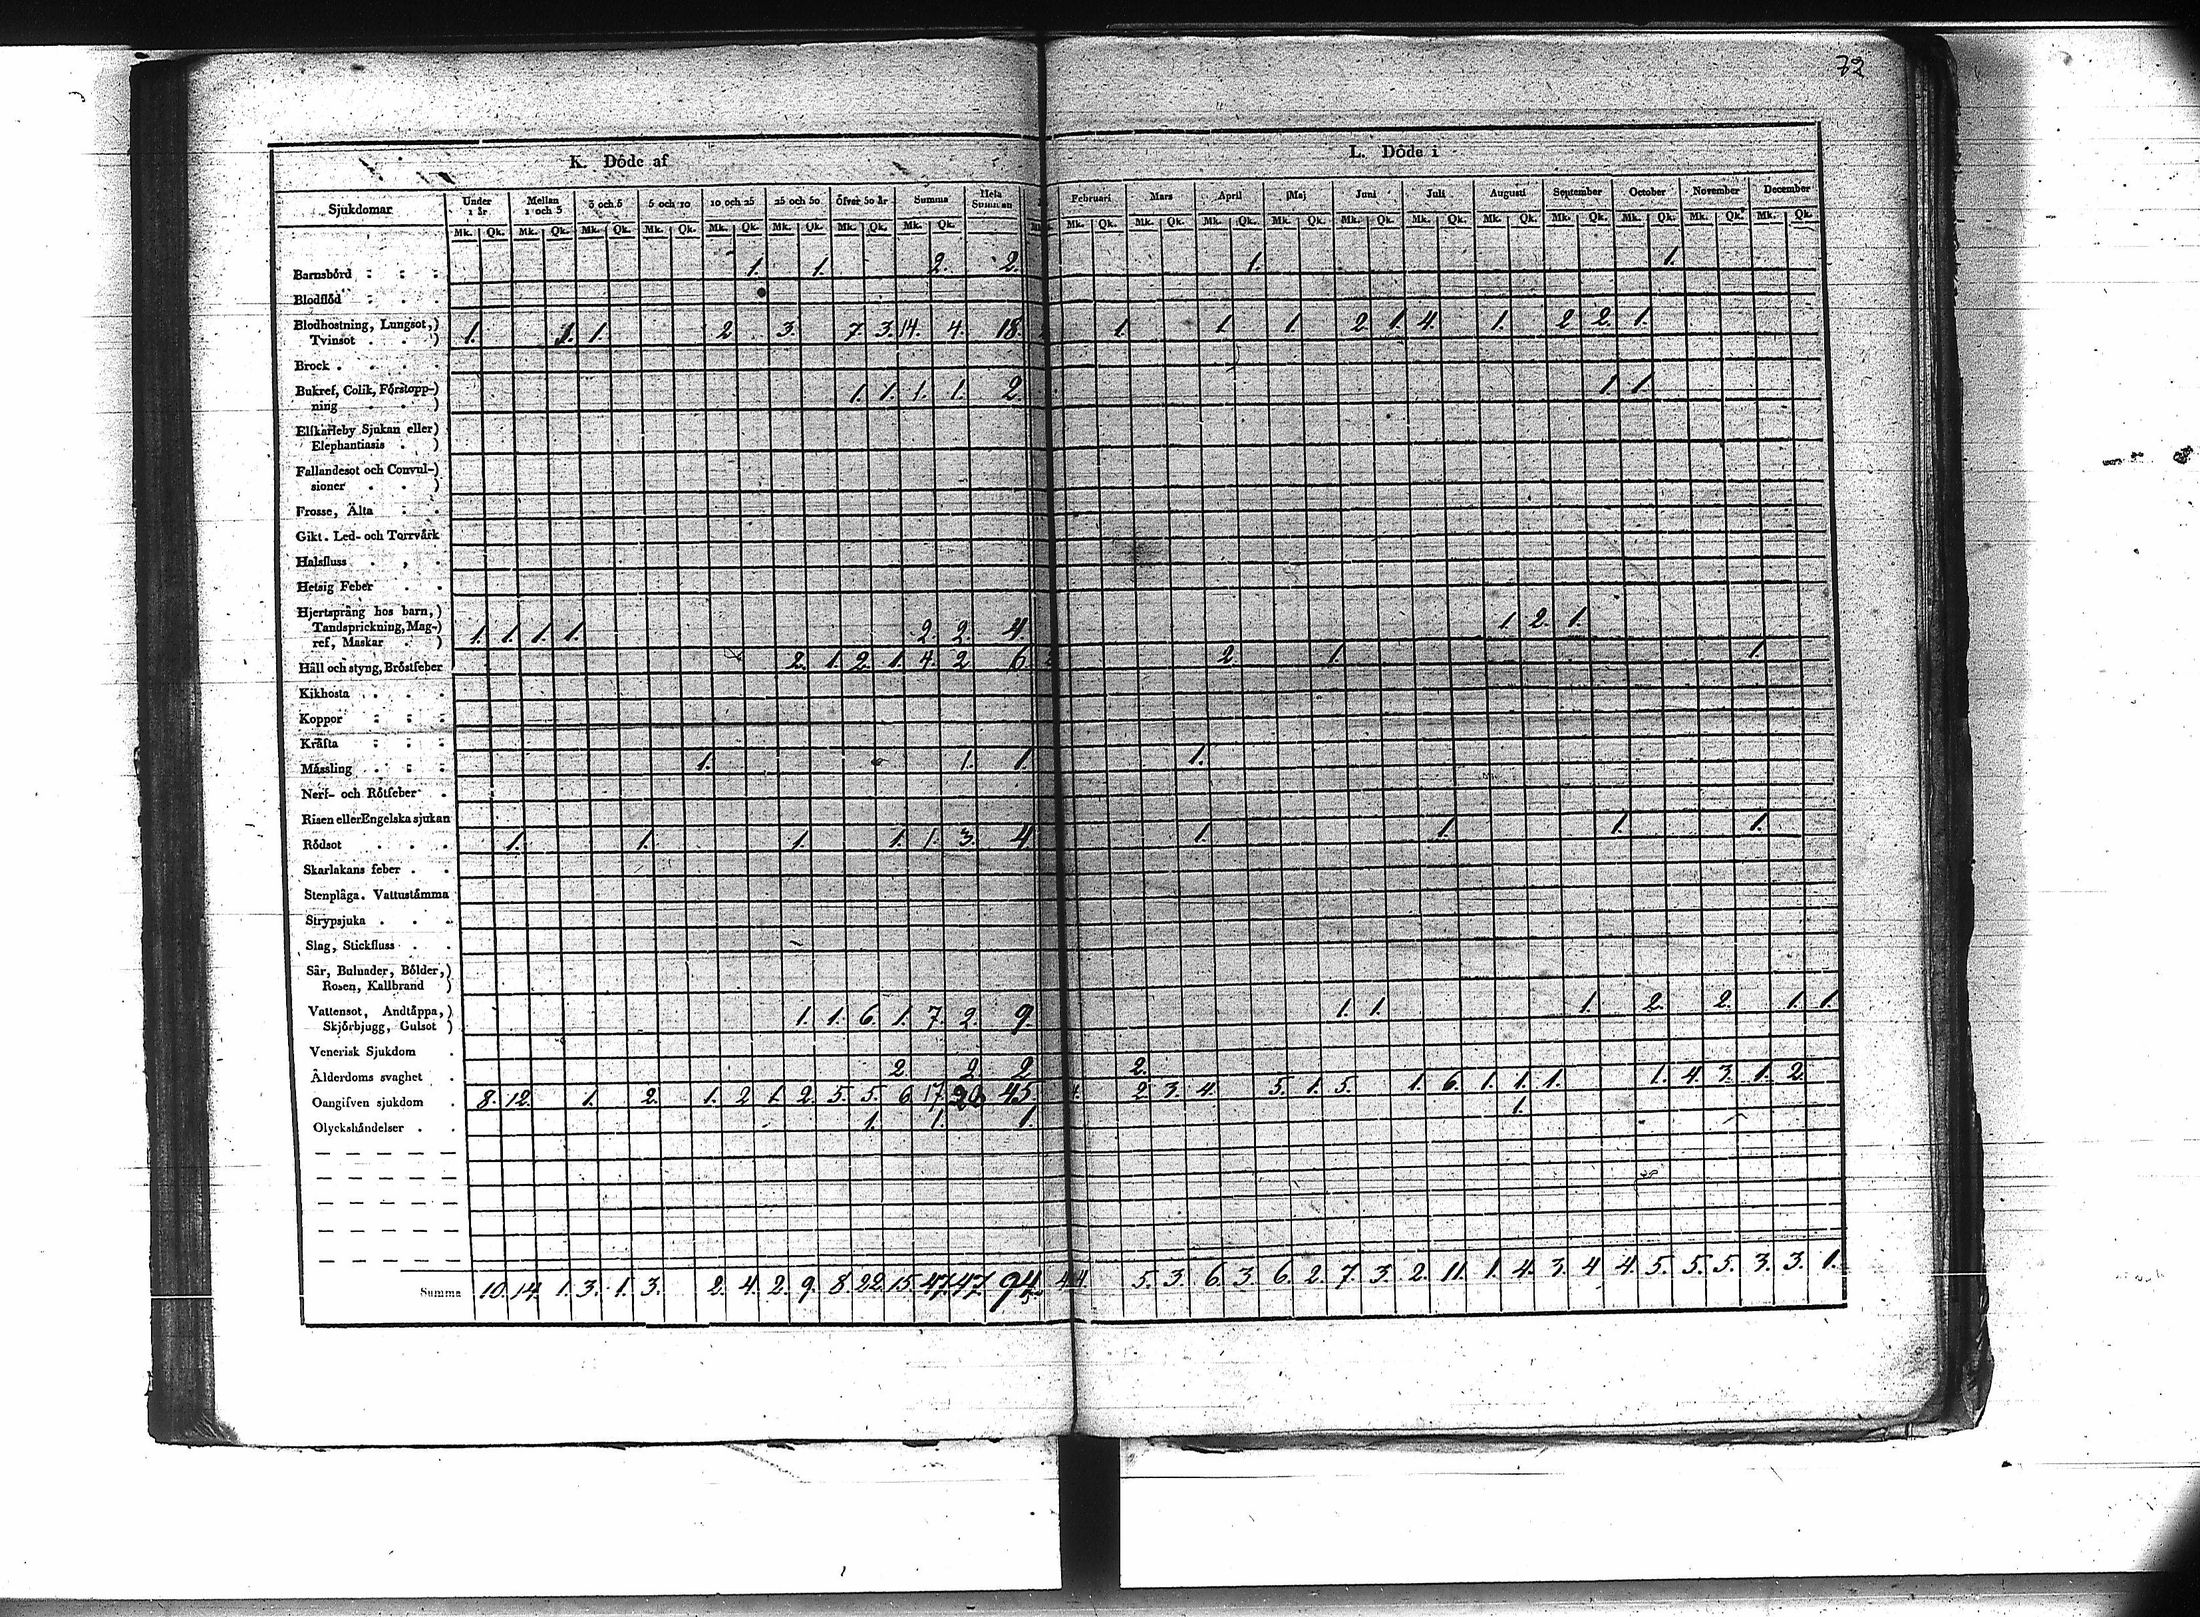 72
K. Döde af L. Döde i
Sjukdomar Under 1 år Mellan 1 och 5 3 och 5 5 och 10 10 och 25 25 och 50 Öfver 50 år Summa Hela Summan Februari Mars April Maj Juni Juli Augusti September October November December
Mk. Qk. Mk. Qk. Mk. Qk. Mk. Qk. Mk. Qk. Mk. Qk. Mk. Qk. Mk. Qk. Mk. Qk. Mk. Qk. Mk. Qk. Mk. Qk. Mk. Qk. Mk. Qk. Mk. Qk. Mk. Qk. Mk. Qk. Mk. Qk. Mk. Qk.
Barnsbörd 1. 1. 2. 2. 1. 1.
Blodflöd
Blodhostning, Lungsot,)
Tvinsot 1. 1. 1. 2. 3. 7. 3. 14. 4. 18. 1. 1. 1. 2. 1. 4. 1. 2 2. 1.
Brock
Bukref, Colik, Förstopp-)
ning 1. 1. 1. 1. 2. 1. 1.
Elfkarleby Sjukan eller)
Elephantiasis
Fallandesot och Convul-)
sioner
Frosse, Älta
Gikt. Led- och Torrvärk
Halsfluss
Hetsig Feber
Hjertsprång hos barn,)
Tandsprickning, Mag-)
ref, Maskar 1. 1. 1. 1. 2. 2. 4. 1. 2. 1.
Håll och styng, Bröstfeber 2. 1. 2. 1. 4. 2. 6 2. 1. 1.
Kikhosta
Koppor
Kräfta
Mässling 1. 1. 1. 1.
Nerf- och Rötfeber
Risen eller Engelska sjukan
Rödsot 1. 1. 1. 1. 1. 3. 4 1. 1. 1. 1.
Skarlakans feber
Stenplåga. Vattustämma
Strypsjuka
Slag, Stickfluss
Sår, Bulnader, Bölder,)
Rosen, Kallbrand )
Vattensot, Andtäppa,)
Skjörbjugg, Gulsot ) 1. 1. 6. 1. 7. 2. 9. 1. 1. 1. 2. 2. 1. 1.
Venerisk Sjukdom
Ålderdoms svaghet 2. 2. 2. 2.
Oangifven sjukdom 8. 12. 1. 2. 1. 2 1. 2. 5. 5. 6 17. 45. 2. 3. 4. 5. 1. 5. 1. 6. 1. 1. 1. 1. 4. 3. 1. 2.
Olyckshändelser 1. 1. 1. 1.
Summa 10. 14. 1. 3. 1. 3. 2. 4. 2. 9. 8. 22. 15. 47. 47. 94. 4. 4. 5. 3. 6. 3. 6. 2. 7. 3. 2. 11. 1. 4. 3. 4 4. 5. 5. 5. 3. 3. 1.